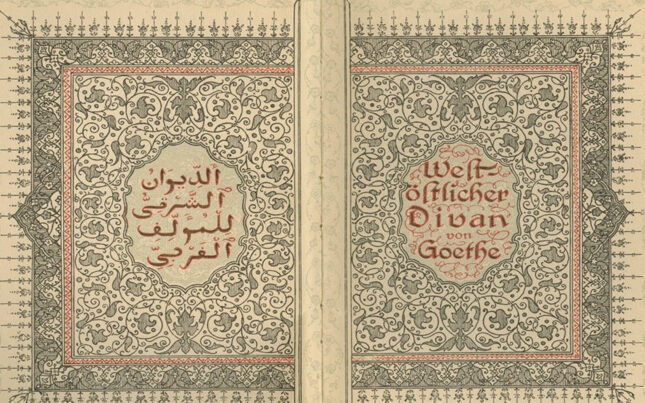 الدِّيوَان
الشَّرقيّ
للمؤلّف
الغَربيّ
West-
östlicher
Divan
von
Goethe